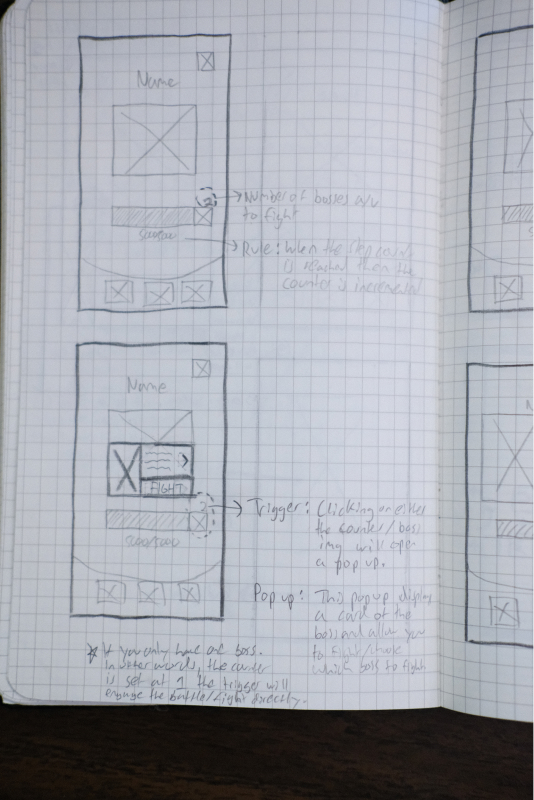 Name
2
Number of bosses a/v
to fight
Rule: When the step count
is reached then the
counter is incremented
Name
FIGHT
2
5000/5000
Trigger: Clicking on either
the counter/boss
img will open
a pop up.
Pop up: This popup display
a card of the
boss and allow you
to fight/chose
which boss to fight
* If you only have one boss.
In other words, the counter
is set at 1 the trigger will
engage the battle/fight directly.